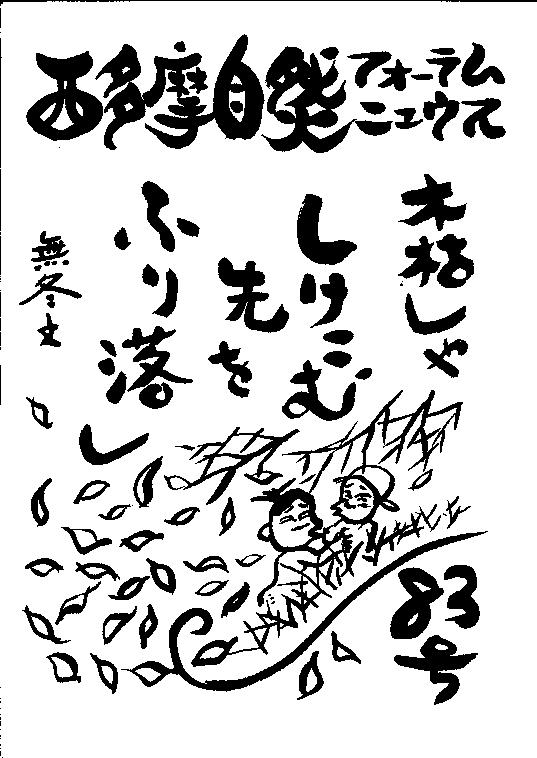 西多摩自然フォーラム
ニュウス
木枯しや
しけこむ
先を
ふり落し
83号